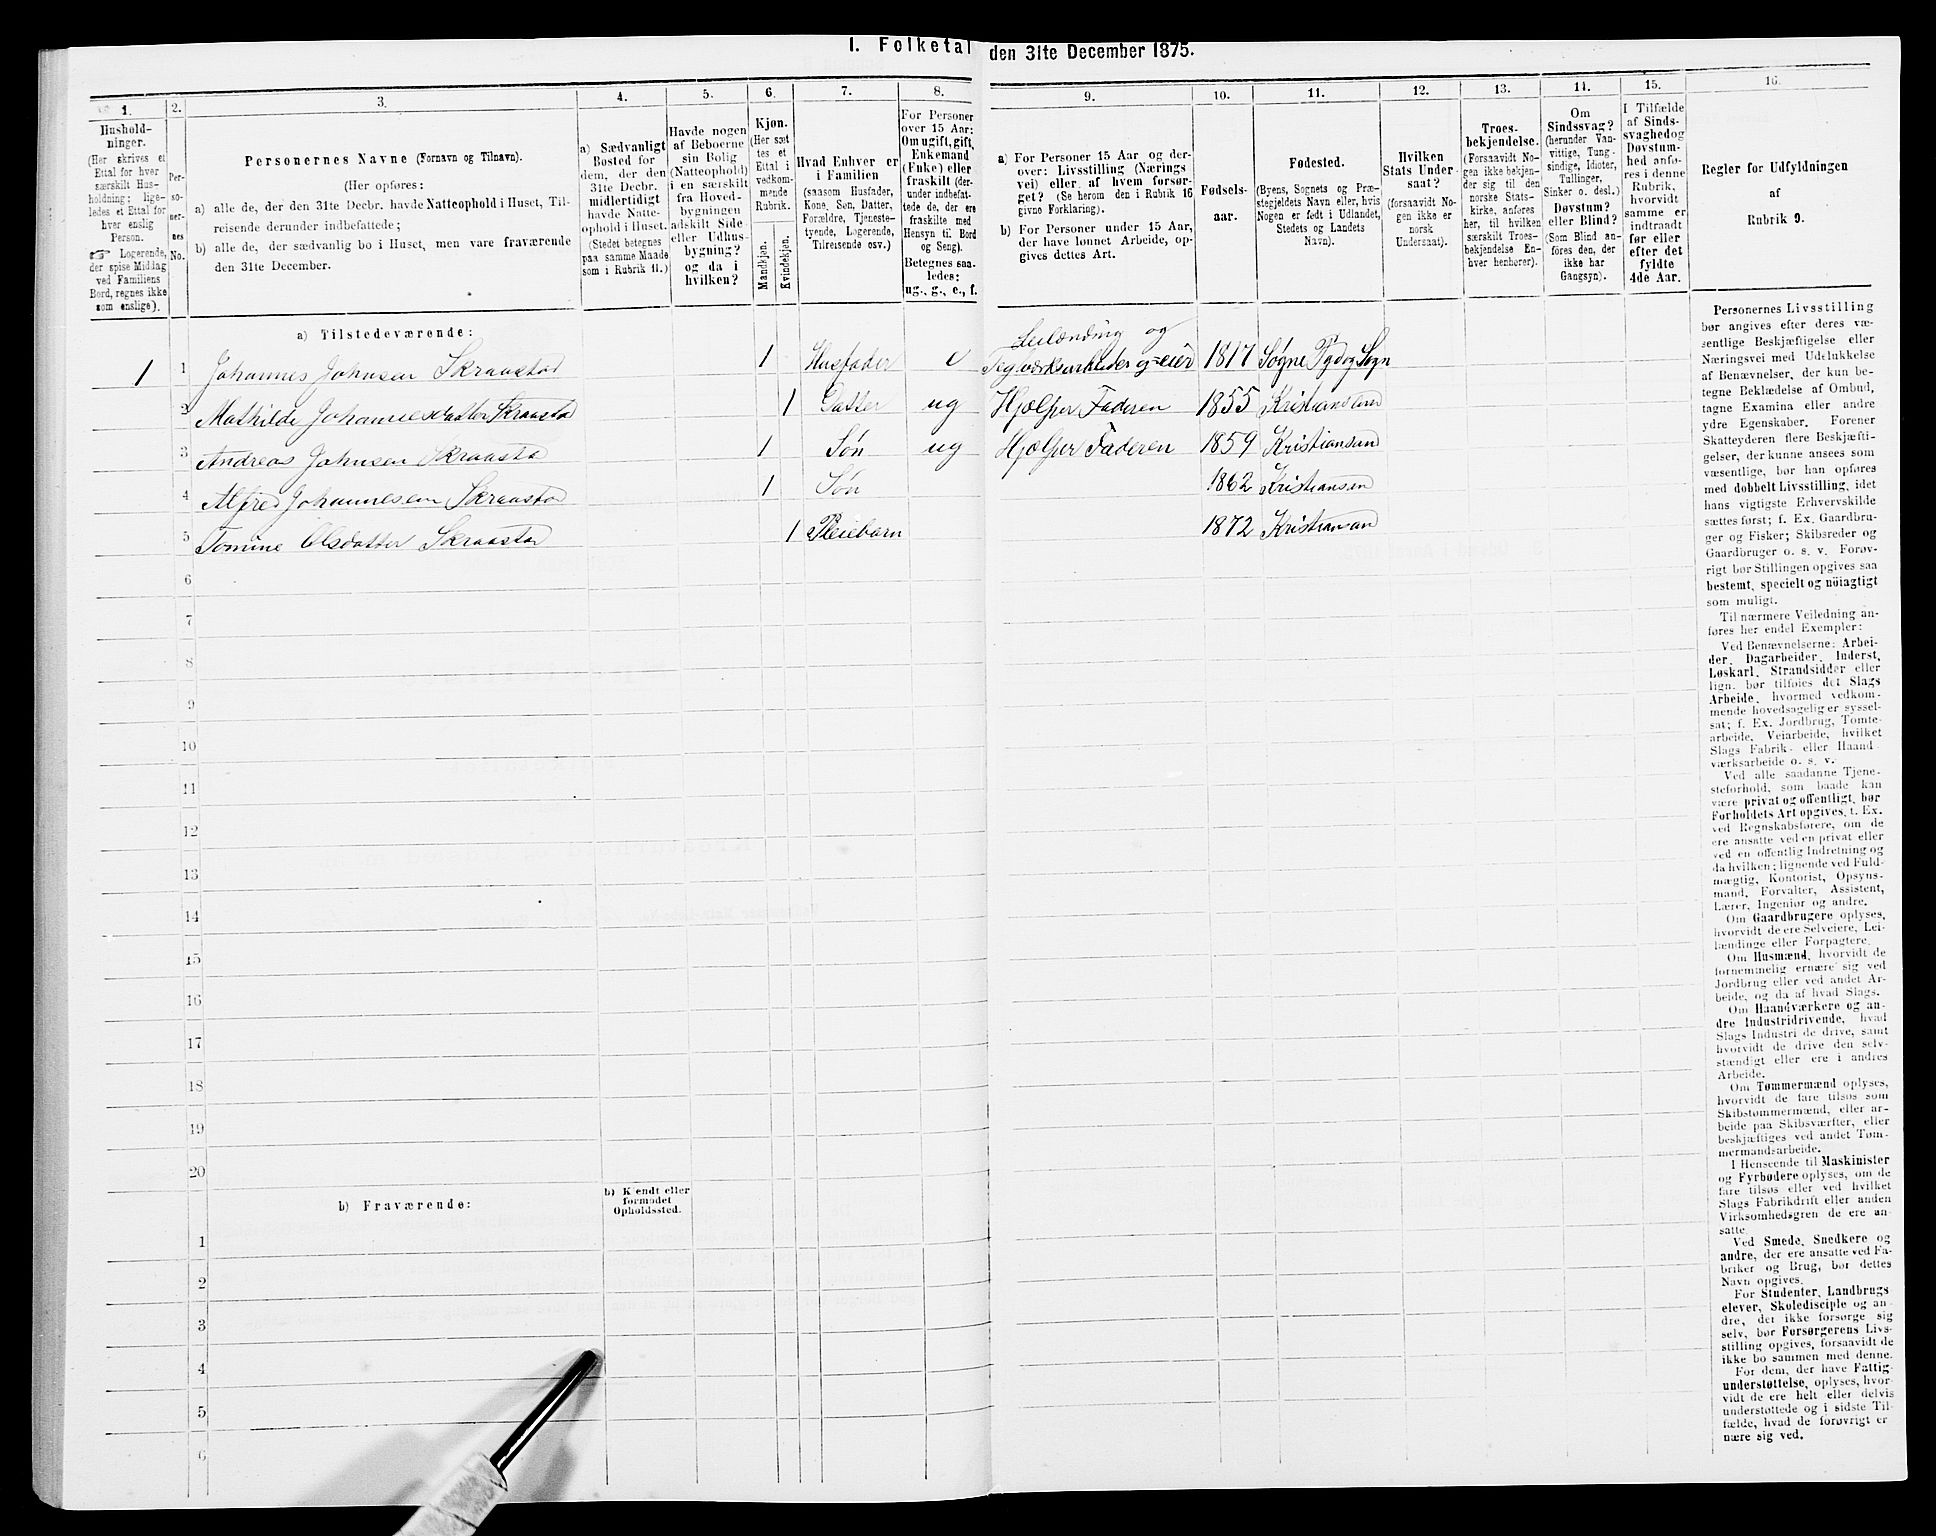 I. Folketal den 31te December 1875.
1.
2.
3.
4.
5.
6.
7.
8.
9.
10.
11.
12.
13.
14.
15.
16.
Hushold-
ninger.
(Her skrives et
Ettal for hver
særskilt Hus-
holdning; lige-
ledes et Ettal for
hver enslig
Person.
☞ Logerende,
der spise Middag
ved Familiens
Bord, regnes ikke
som enslige).
Per-
so-
ner-
nes
No.
Personernes Navne (Fornavn og Tilnavn).
(Her opføres:
a) alle de, der den 31te Decbr. havde Natteophold i Huset, Til-
reisende derunder indbefattede;
b) alle de, der sædvanlig bo i Huset, men vare fraværende
den 31te December.
a) Sædvanligt
Bosted for
dem, der den
31te Decbr.
midlertidigt
havde Natte-
ophold i Huset.
(Stedet betegnes
paa samme Maade
som i Rubrik 11.)
Havde nogen
af Beboerne
sin Bolig
(Natteophold)
i en særskilt
fra Hoved-
bygningen
adskilt Side-
eller Udhus-
bygning?
og da i
hvilken?
Kjøn.
(Her sæt
tes et
Ettal i
vedkom-
mende
Rubrik.
Mandkjøn.
Kvindekjøn.
Hvad Enhver er
i Familien
(saasom Husfader,
Kone, Søn, Datter,
Forældre, Tjeneste-
tyende, Logerende,
Tilreisende osv.)
For Personer
over 15 Aar:
Om ugift, gift,
Enkemand
(Enke) eller
fraskilt (der-
under indbefat-
tede de, der ere
fraskilte med
Hensyn til Bord
og Seng).
Betegnes saa-
ledes:
ug., g., e., f.
a) For Personer 15 Aar og der-
over: Livsstilling (Nærings
vei) eller af hvem forsør-
get? (Se herom den i Rubrik 16
givne Forklaring).
b) For Personer under 15 Aar,
der have lønnet Arbeide, op-
gives dettes Art.
Fødsels-
aar.
Fødested.
(Byens, Sognets og Præ-
stegjeldets Navn eller, hvis
Nogen er født i Udlandet,
Stedets og Landets
Navn).
Hvilken
Stats Under
saat?
(forsaavidt No-
gen ikke er
norsk
Undersaat).
Troes-
bekjendelse.
(Forsaavidt No-
gen ikke bekjen-
der sig til den
norske Stats-
kirke, anføres
her, til hvilken
særskilt Troes-
bekjendelse En-
hver henhører).
Om
Sindssvag?
(herunder Van-
vittige, Tung-
sindige, Idioter,
Tullinger,
Sinker o. desl.)
Døvstum?
eller Blind?
(Som Blind an-
føres den, der
ikke har
Gangsyn).
I Tilfælde
af Sinds-
svaghed og
Døvstum-
hed anfø-
res i denne
Rubrik,
hvorvidt
samme er
indtraadt
før eller
efter det
fyldte
4de Aar.
Regler for Udfyldningen
af
Rubrik 9.
a) Tilstedeværende:
Leilænding og
1 1 Johannes Johnsen Skraastad 1 Husfader e Teglværksarbeider og eier 1817 Søgne Pgd og Sogn
2 Mathilde Johannesdatter Skraastad 1 Datter ug Hjelper Faderen 1855 Kristiansand
3 Andreas Johnsen Skraastad 1 Søn ug Hjelper Faderen 1859 Kristiansand
4 Alfred Johannesen Skraastad 1 Søn 1862 Kristiansan
5 Tomine Olsdatter Skraastad 1 Pleiebarn 1872 Kristiansan
6
7
8
9
10
11
12
13
14
15
16
17
18
19
20
b) Fraværende:
b) Kjendt eller
formodet
Opholdssted.
1
2
3
4
5
6
Personernes Livsstilling
bør angives efter deres væ-
sentlige Beskjæftigelse eller
Næringsvei med Udelukkelse
af Benævnelser, der kun be-
tegne Beklædelse af Ombud,
tagne Examina eller andre
ydre Egenskaber. Forener
Skatteyderen flere Beskjæfti-
gelser, der kunne ansees som
væsentlige, bør han opføres
med dobbelt Livsstilling, idet
hans vigtigste Erhvervskilde
sættes først; f. Ex. Gaardbru-
ger og Fisker; Skibsreder og
Gaardbruger o. s. v. Forøv-
rigt bør Stillingen opgives saa
bestemt, specielt og nöiagtigt
som muligt.
Til nærmere Veiledning an-
føres her endel Exempler:
Ved Benævnelserne: Arbei-
der, Dagarbeider, Inderst,
Løskarl, Strandsidder eller
lign. bør tilføies det Slags
Arbeide, hvormed vedkom-
mende hovedsagelig er syssel-
sat; f. Ex. Jordbrug, Tomte-
arbeide, Veiarbeide, hvilket
Slags Fabrik- eller Haand-
værksarbeide o. s. v.
Ved alle saadanne Tjene-
steforhold, som baade kan
være privat og offentligt, bør
Forholdets Art opgives, t. Ex.
ved Regnskabsførere, om de
ere ansatte ved en privat eller
ved en offentlig Indretning og
da hvilken; lignende ved Fuld-
mægtig, Kontorist, Opsyns-
mand, Forvalter, Assistent,
Lærer, Ingeniør og andre.
Om Gaardbrugere oplyses,
hvorvidt de ere Selveiere, Lei-
lændinge eller Forpagtere.
Om Husmænd, hvorvidt de
fornemmelig ernære sig ved
Jordbrug eller ved andet Ar-
beide, og da af hvad Slags.
Om Haandværkere og an-
dre Industridrivende, hvad
Slags Industri de drive, samt
hvorvidt de drive den selv-
stændigt eller ere i andres
Arbeide.
Om Tømmermænd oplyses,
hvorvidt de fare tilsøs som
Skibstømmermænd, eller ar-
beide paa Skibsværfter, eller
beskjæftiges ved andet Tøm-
mermandsarbeide.
I Henseende til Maskinister
og Fyrbødere oplyses, om de
fare tilsøs eller ved hvilket
Slags Fabrikdrift eller anden
Virksomhedsgren de ere an-
satte.
Ved Smede, Snedkere og
andre, der ere ansatte ved Fa-
briker og Brug, bør dettes
Navn opgives.
For Studenter, Landbrugs-
elever, Skoledisciple og an-
dre, der ikke forsørge sig
selv, bør Forsørgerens Livs-
stilling opgives, forsaavidt de
ikke bo sammen med denne.
For dem, der have Fattig-
understøttelse, oplyses, hvor-
vidt de ere helt eller delvis
understøttede og i sidste Til-
fælde, hvad de forøvrigt er
nære sig ved.